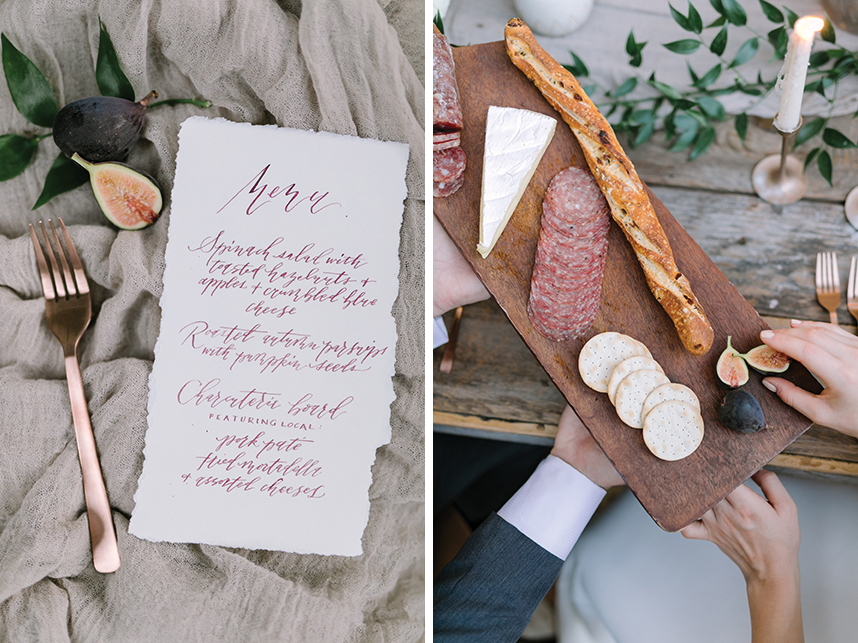 Menu
Spinach salad with
toasted hazelnuts +
apples + crumbled blue
cheese
Roasted autumn parsnips
with pumpkin seeds
Charcuterie board
FEATURING LOCAL:
pork pate
fried mortadella
+ assorted cheeses